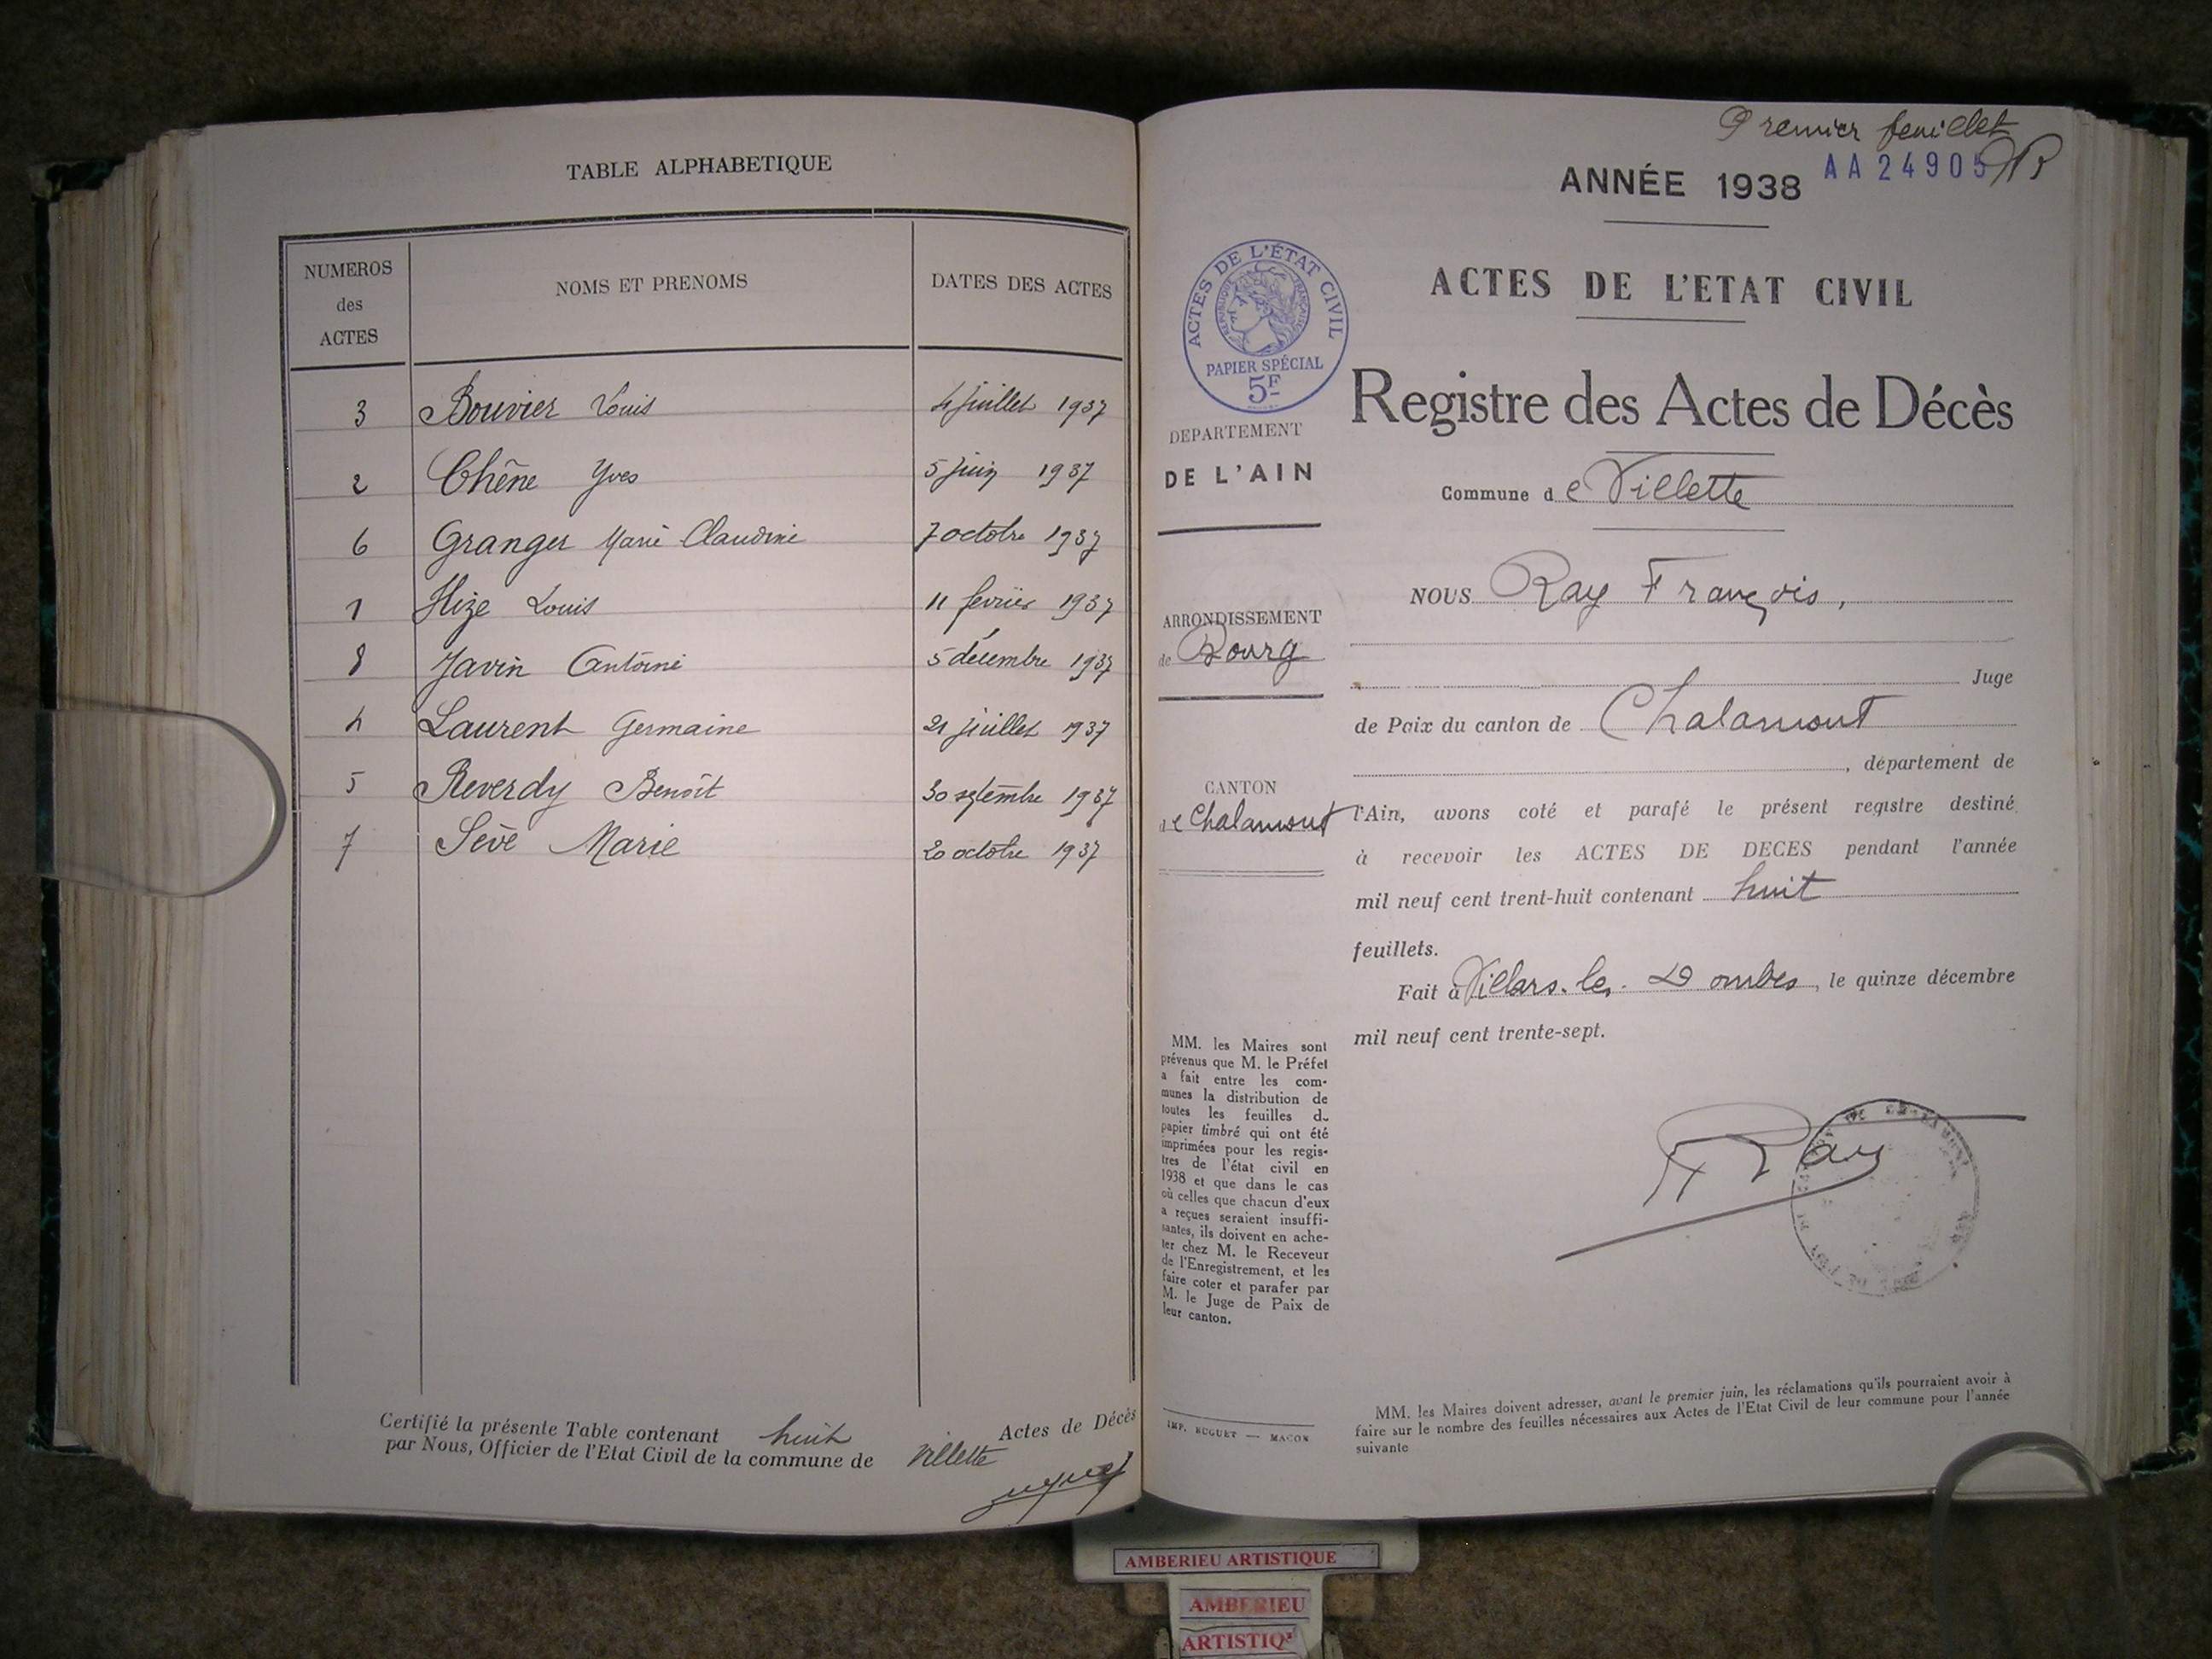 TABLE ALPHABETIQUE
NUMEROS
des
ACTES
NOMS ET PRENOMS
DATES DES ACTES
3 Bouvier Louis 4 juillet 1937
2 Chêne Yves 5 juin 1937
6 Granger Marie Claudine 7 octobre 1937
1 Hize Louis 11 février 1937
8 Javin Antoine 5 décembre 1937
4 Laurent Germaine 21 juillet 1937
5 Reverdy Benoît 30 septembre 1937
7 Sève Marie 20 octobre 1937
Certifié la présente Table contenant huit Actes de Décès
par Nous, Officier de l'Etat Civil de la commune de Villette
Premier feuillet
AA24905
ANNÉE 1938
ACTES DE L'ÉTAT CIVIL
RÉPUBLIQUE FRANÇAISE
PAPIER SPÉCIAL
5F
ACTES DE L'ETAT CIVIL
Registre des Actes de Décès
DEPARTEMENT
DE L'AIN
Commune de Villette
ARRONDISSEMENT
de Bourg
CANTON
de Chalamont
NOUS Ray François,
Juge
de Paix du canton de Chalamont
, département de
l'Ain, avons coté et parafé le présent registre destiné
à recevoir les ACTES DE DECES pendant l'année
mil neuf cent trent-huit contenant huit
feuillets.
Fait à Villars-les-Dombes, le quinze décembre
mil neuf cent trente-sept.
Ray
MM. les Maires sont
prévenus que M. le Préfet
a fait entre les com-
munes la distribution de
toutes les feuilles d
papier timbré qui ont été
imprimées pour les regis-
tres de l'état civil en
1938 et que dans le cas
où celles que chacun d'eux
a reçues seraient insuffi-
santes, ils doivent en ache-
ter chez M. le Receveur
de l'Enregistrement, et les
faire coter et parafer par
M. le Juge de Paix de
leur canton.
IMP. BUGUET — MACON
MM. les Maires doivent adresser, avant le premier juin, les réclamations qu'ils pourraient avoir à
faire sur le nombre des feuilles nécessaires aux Actes de l'Etat Civil de leur commune pour l'année
suivante
AMBERIEU ARTISTIQUE
AMBERIEU
ARTISTIQ